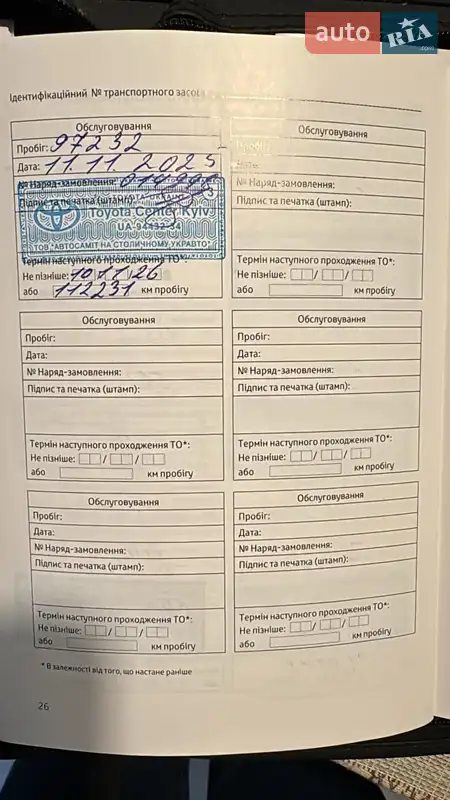 auto RIA .com
Ідентифікаційний № транспортного засоб
Обслуговування
Пробіг: 97232
Дата: 11.11.2025
№ Наряд-замовлення:
Підпис та печатка (штамп)
Toyota Center Kyiv
UA-94432-34
ТОВ "АВТОСАМІТ НА СТОЛИЧНОМУ УКРАВТО"
Термін наступного проходження ТО*:
Не пізніше: 10/11/26
або 112231 км пробігу
Обслуговування
Пробіг:
Дата:
№ Наряд-замовлення:
Підпис та печатка (штамп):
Термін наступного проходження ТО*:
Не пізніше: / /
або км пробігу
Обслуговування
Пробіг:
Дата:
№ Наряд-замовлення:
Підпис та печатка (штамп):
Термін наступного проходження ТО*:
Не пізніше: / /
або км пробігу
Обслуговування
Пробіг:
Дата:
№ Наряд-замовлення:
Підпис та печатка (штамп):
Термін наступного проходження ТО*:
Не пізніше: / /
або км пробігу
Обслуговування
Пробіг:
Дата:
№ Наряд-замовлення:
Підпис та печатка (штамп):
Термін наступного проходження ТО*:
Не пізніше: / /
або км пробігу
Обслуговування
Пробіг:
Дата:
№ Наряд-замовлення:
Підпис та печатка (штамп):
Термін наступного проходження ТО*:
Не пізніше: / /
або км пробігу
* В залежності від того, що настане раніше
26